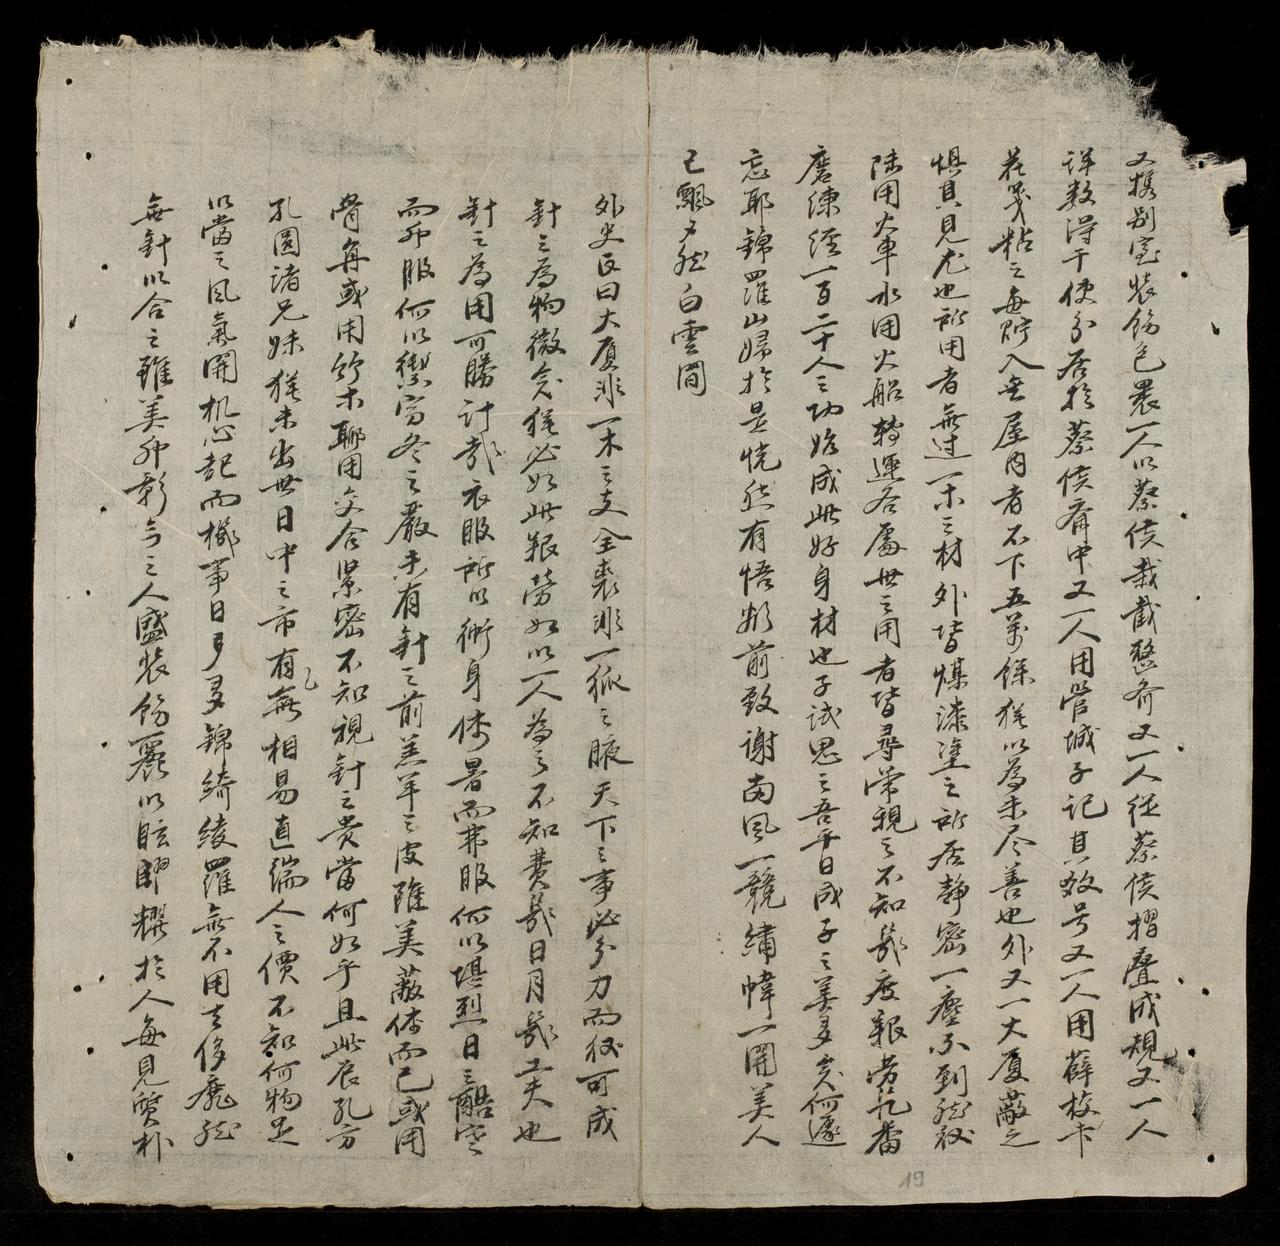 又携別室裝飾包裹一人以蔡侯裁截整齊又一人從蔡侯摺疊成規又一人
詳数得干使分居於蔡侯齋中又一人用管城子記其数号又一人用薛枝卡
花箋粘之每貯入無屋內者不下五萬餘猶以為未尽善也外又一大厦蔽之
惧其見尤也所用者無过一木之材外皆煤漆塗之所居靜密一塵不到然後
陸用火車水用火船轉運各處世之用者皆尋常視之不知幾度艱勞几番
磨煉經一百二十人之功始成此好身材也子試思之吾平日成子之美多矣何遽
忘耶錦羅山婦於是恍然有悟敛前致謝南風一競繡幃一開美人
已飄夕然白雲間
外史氏曰大厦非一木之支全裘非一狐之腋天下之事必分力而後可成
針之為物微矣猶必如此艱勞如以一人為之不知費幾日月幾工夫也
針之為用可勝計哉衣服所以衛身体暑而弗服何以堪烈日之酷寒
而弗服何以禦窮冬之嚴未有針之前羔羊之皮雖美蔽体而已或用
骨角或用竹木聊用交合縈密不知視針之贵當何如乎且此辰孔方
孔圓諸兄妹猶未出世日中之市有無相易直端人之價不知何物足
以當之風氣開机心起而機事日夕多錦綺綾羅無不用之侈靡然
無針以合之雖美弗彰今之人盛裝飾麗以眩耀於人每見質朴
19